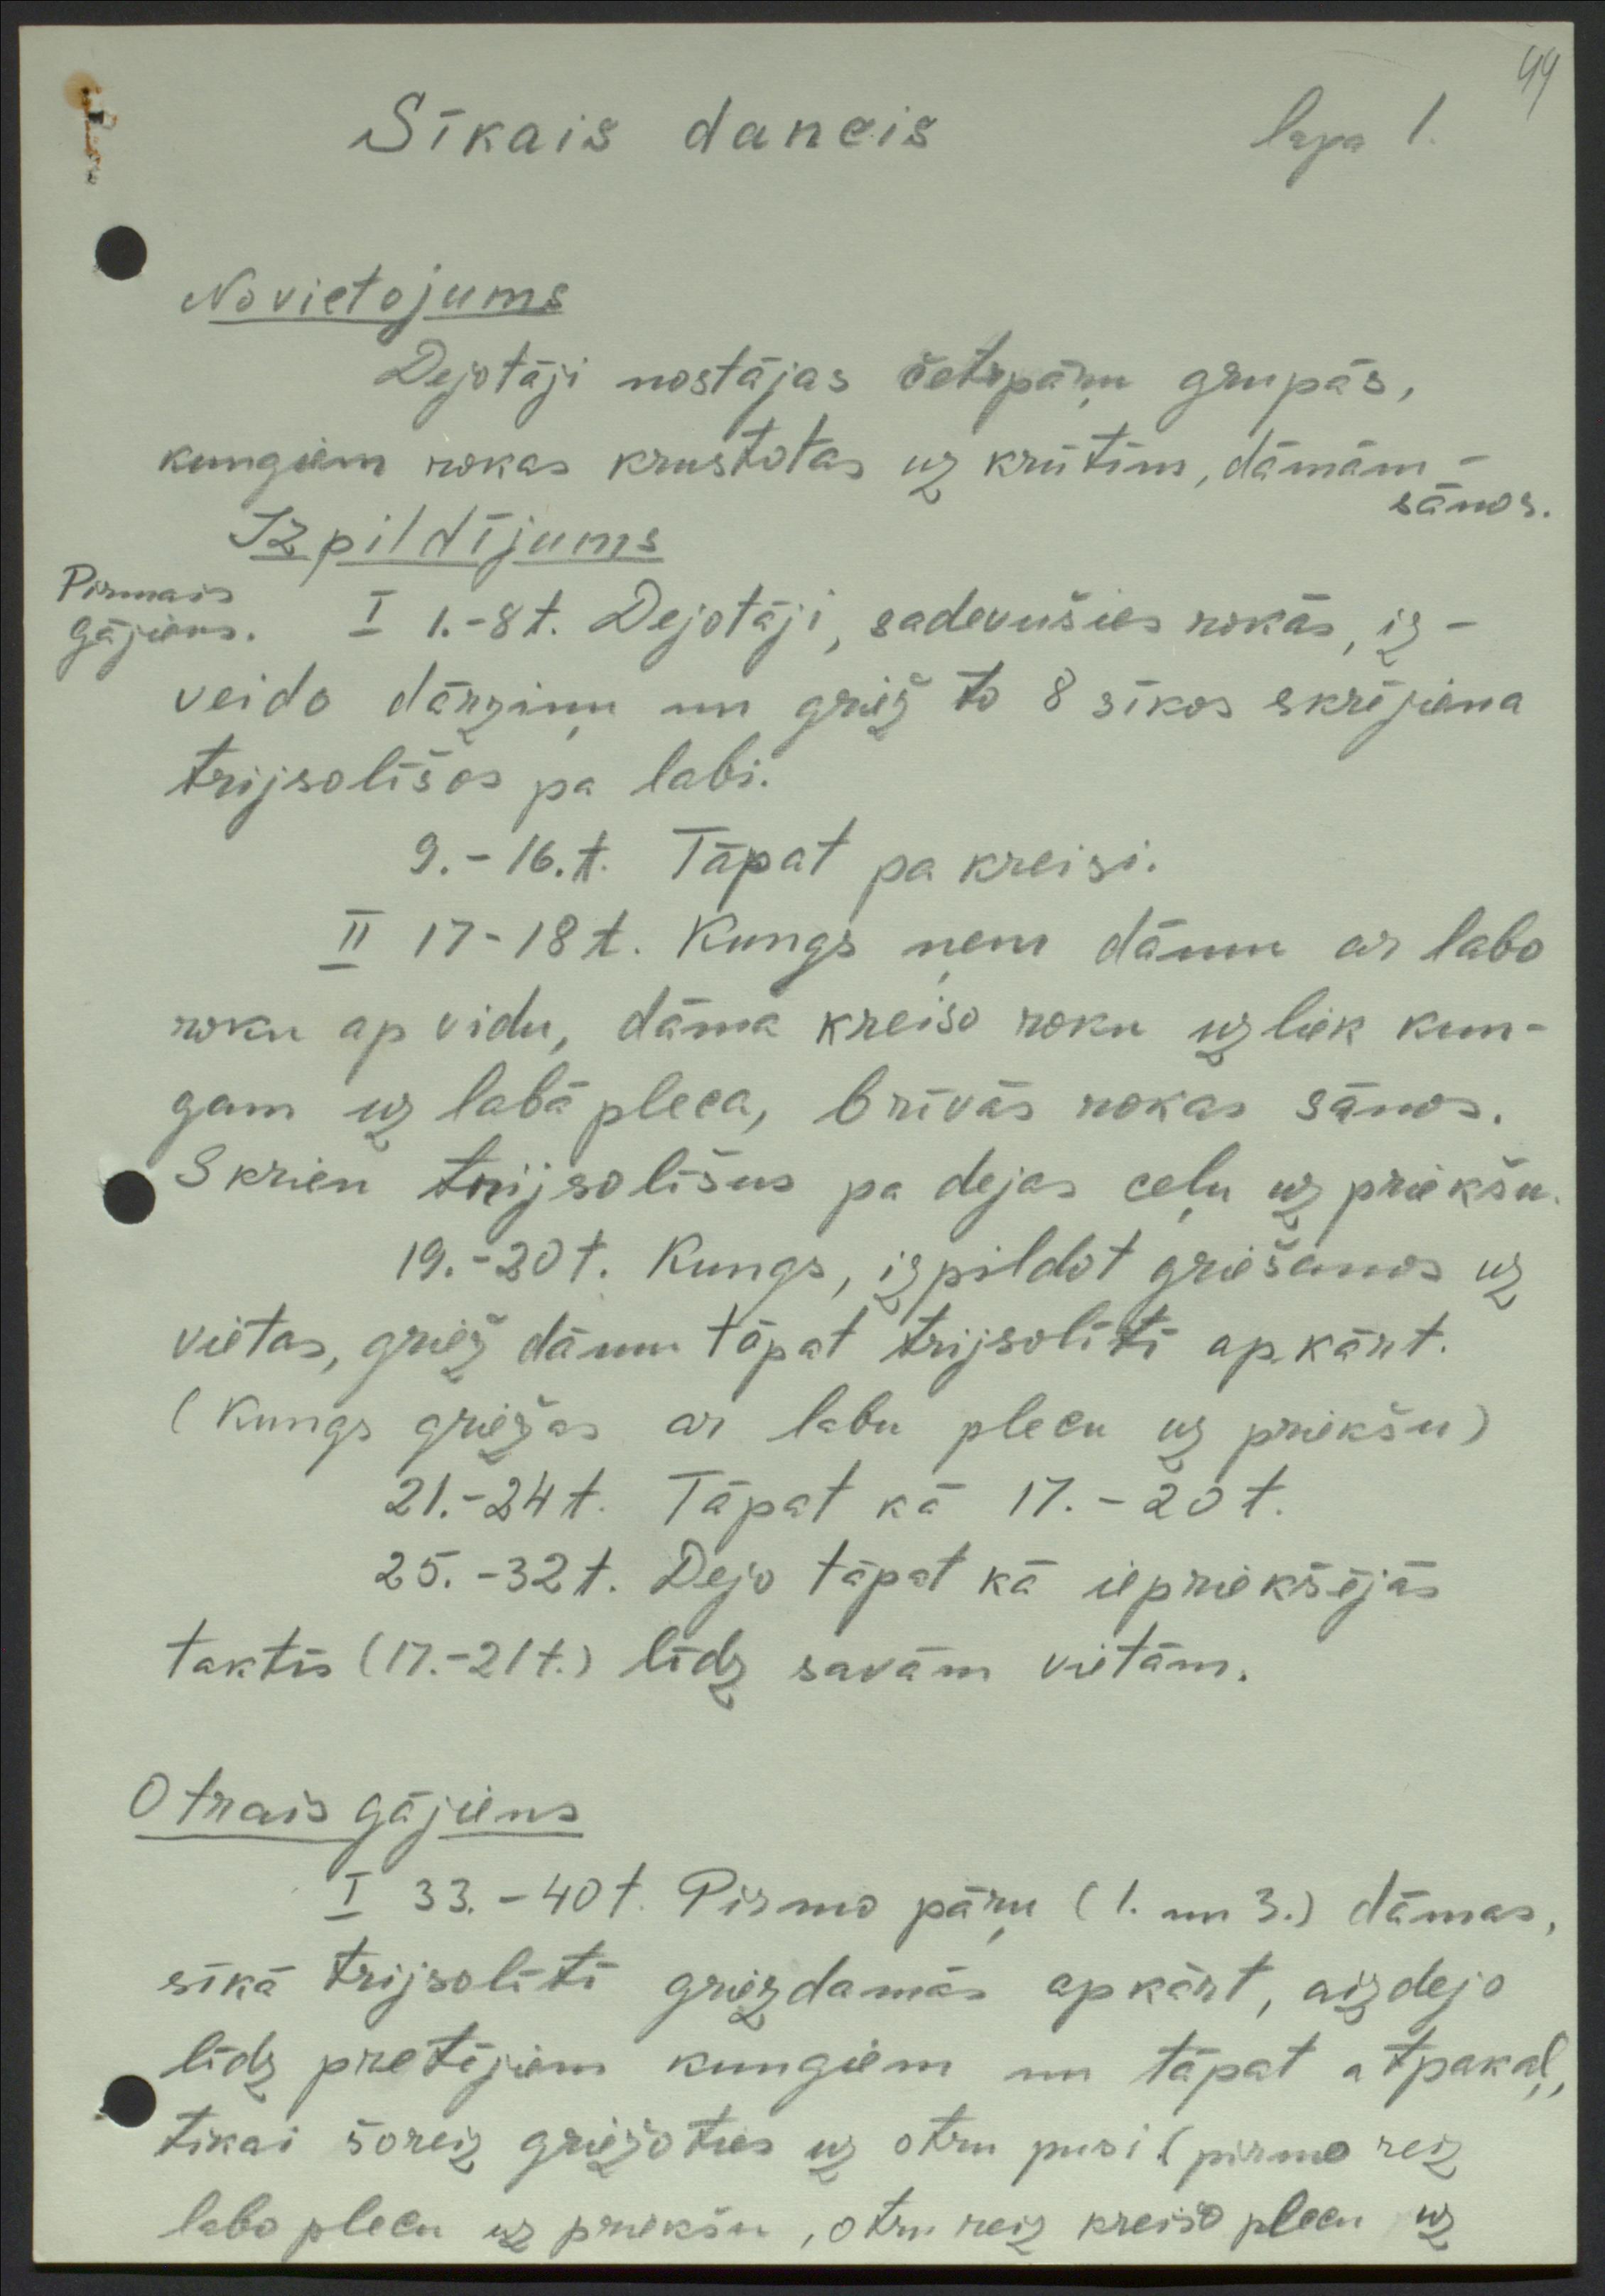 44
Sīkais dancis lapa 1.
Novietojums
Dejotāji nostājas četrpāŗu grupās,
kungiem rokas krustotas uz krūtīm, dāmām -
sānos.
Izpildījums
Pirmais
gājiens. I 1.-8t. Dejotāji, sadevušies rokās, iz-
veido dārziņu un griež to 8 sīkos skrējiena
trijsolīšos pa labi.
9.-16.t. Tāpat pa kreisi.
II 17-18t. Kungs ņem dāmu ar labo
roku ap vidu, dāma kreiso roku uzliek kun-
gam uz labā pleca, brīvās rokas sānos.
Skrien trijsolīšus pa dejas ceļu uz priekšu.
19.-20t. Kungs, izpildot griešanos uz
vietas, griež dāmu tāpat trijsolītī apkārt.
(Kungs griežas ar labu plecu uz priekšu)
21.-24t. Tāpat kā 17.-20t.
25.-32t. Dejo tāpat kā iepriekšējās
taktīs (17.-21t.) līdz savām vietām.
Otrais gājiens
I 33.-40t. Pirmo pāŗu (1. un 3.) dāmas,
sīkā trijsolītī griezdamās apkārt, aizdejo
līdz pretējiem kungiem un tāpat atpakaļ,
tikai šoreiz griežoties uz otru pusi (pirmo reiz
labo plecu uz priekšu, otru reiz kreiso plecu uz